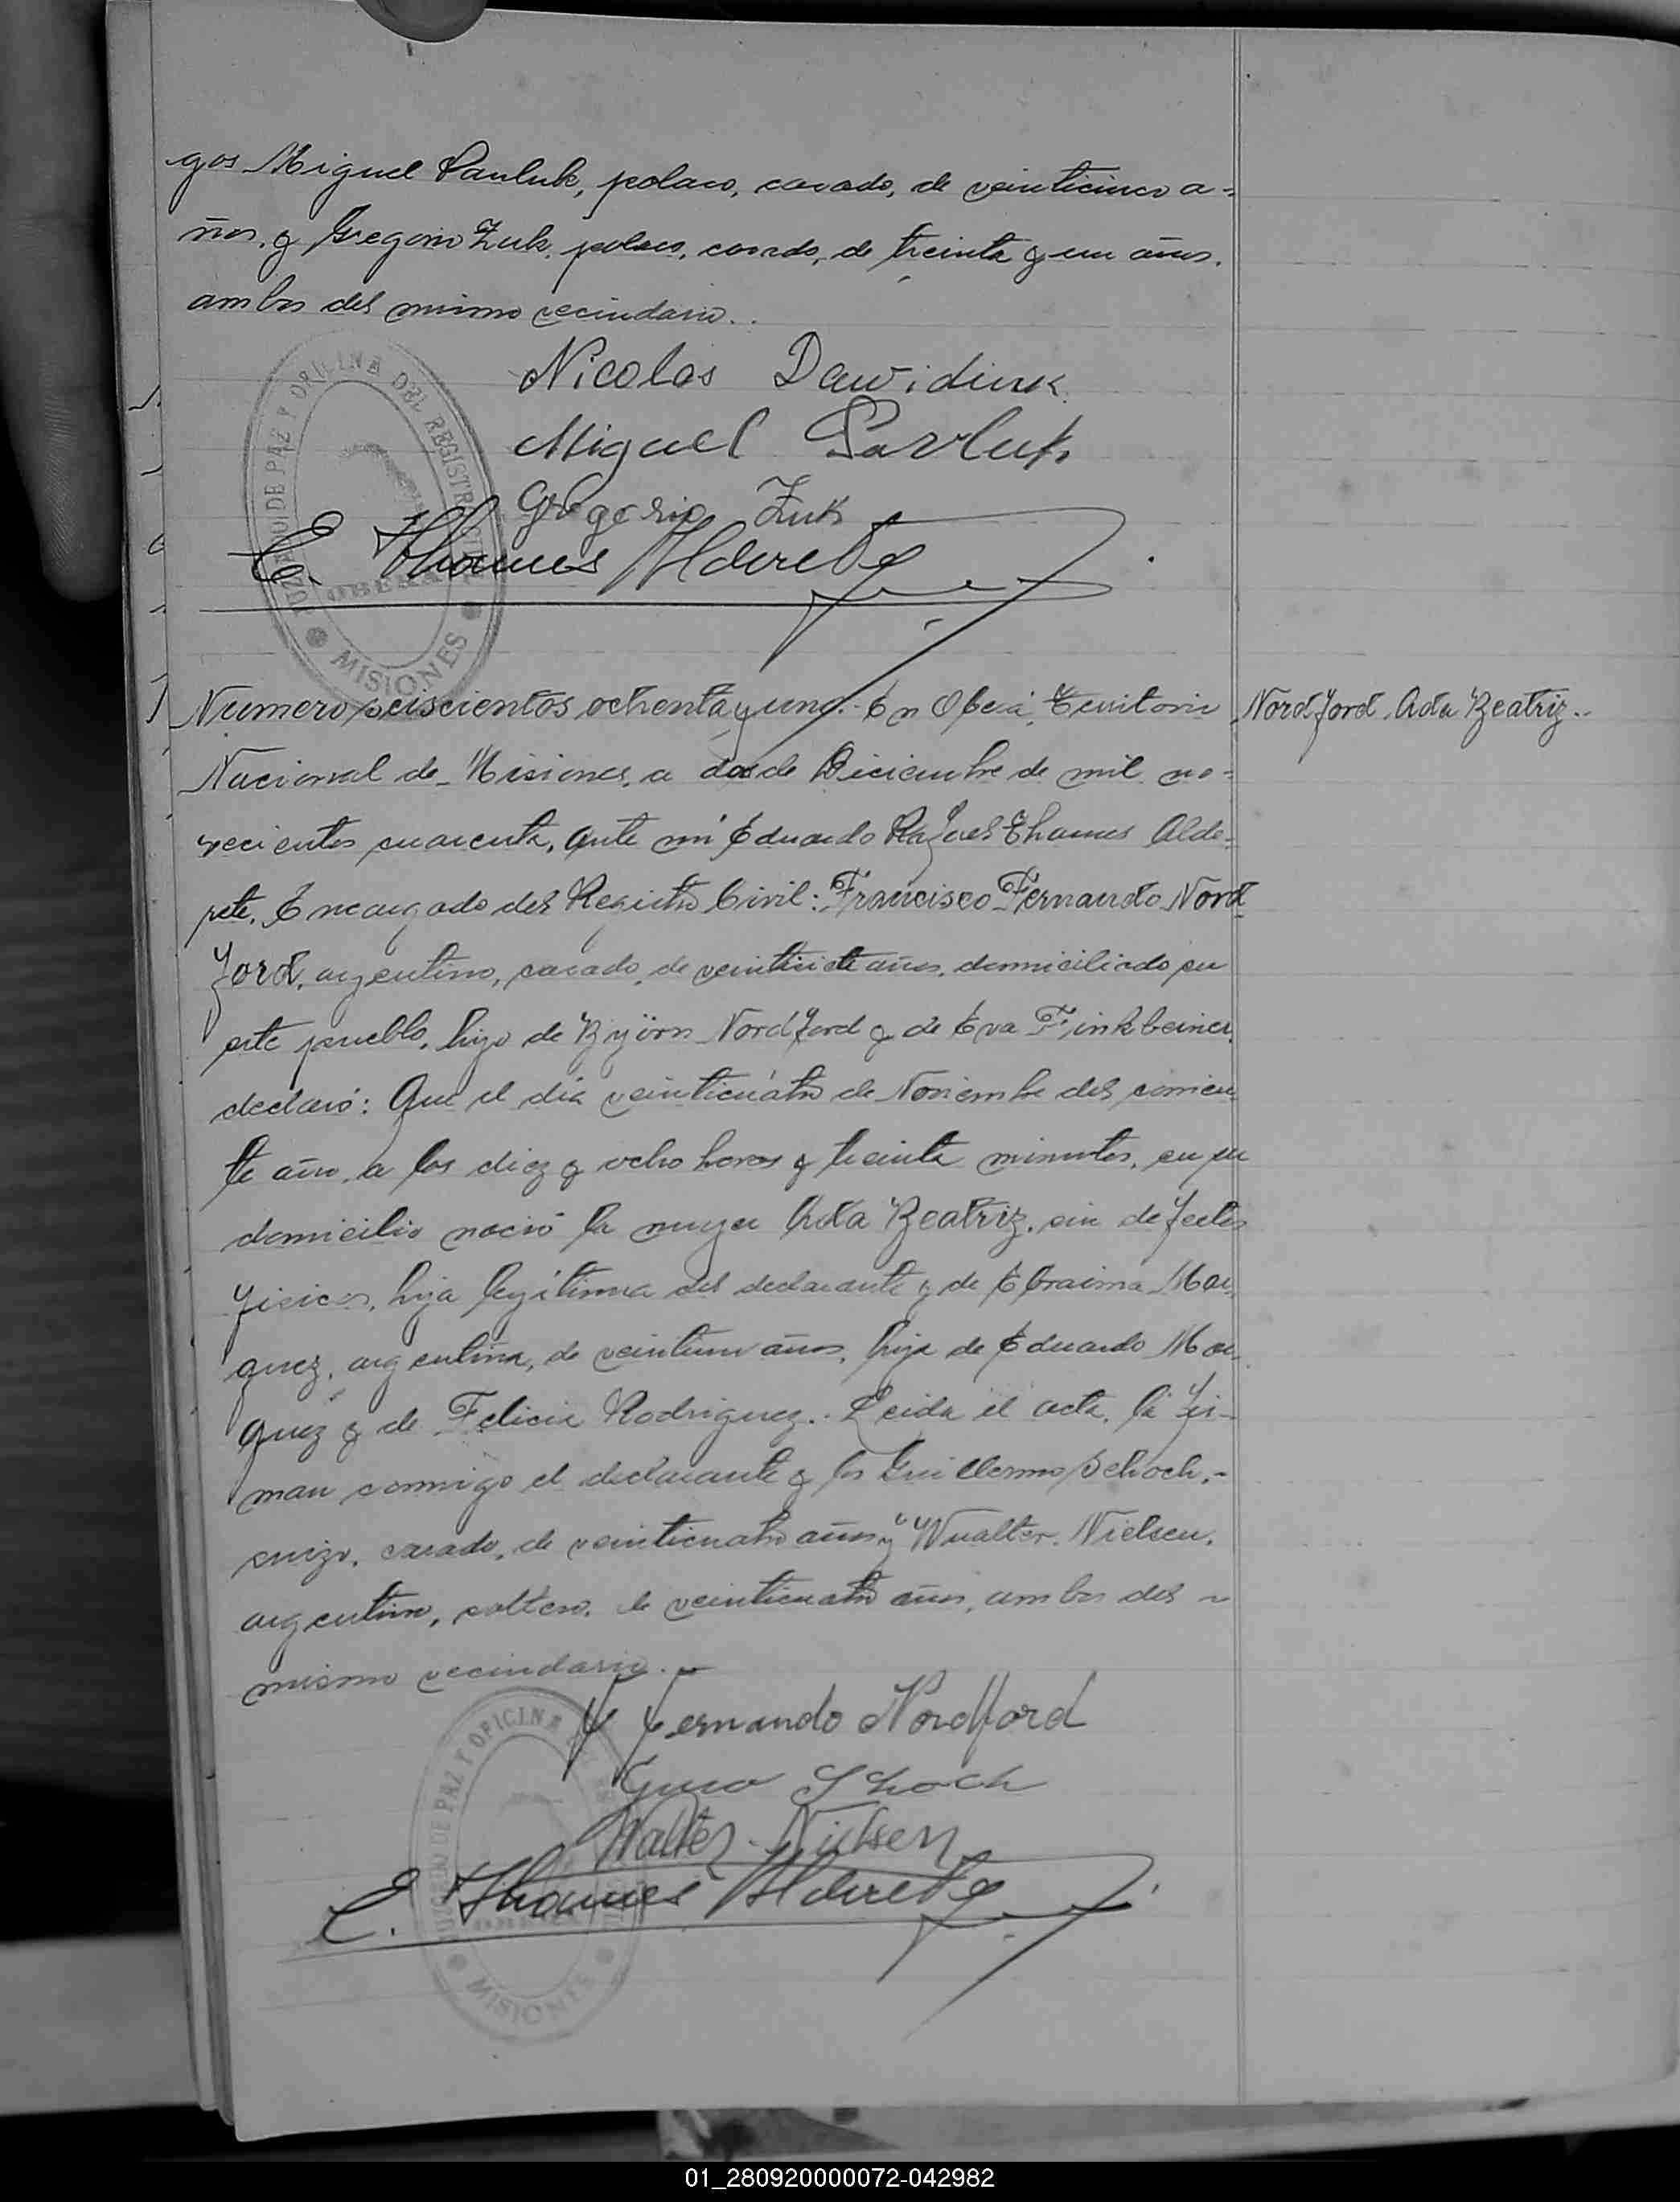 gos Miguel Pauluk, polaco, casado, de veinticinco a-
ños, y Gregorio Zuk, polaco, casado, de treinta y un años,
ambos del mismo vecindario..
Nicolas Dawidiuk
Miguel Pavluk
Gregorio Zuk
E. Thames Alderete
JUZGADO DE PAZ Y OFICINA DEL REGISTRO
OBERA
MISIONES
Numero seiscientos ochenta y uno.- En Oberá, Territorio
Nordford, Ada Beatriz..
Nacional de Misiones, a dos de Diciembre de mil no-
vecientos cuarenta, ante mi Eduardo Rafael Thames Alde-
rete, Encargado del Registro Civil: Francisco Fernando Nord
ford, argentino, casado, de veintisiete años, domiciliado en
este pueblo, hijo de Byörn Nordford y de Eva Finkbeiner,
declaró: Que el día veinticuatro de Noviembre del corrien
te año, a las diez y ocho horas y treinta minutos, en su
domicilio nació la mujer Ada Beatriz, sin defectos
fisicos, hija legítima del declarante y de Efraima Mar
quez, argentina, de veintiun años, hija de Eduardo Mar
quez y de Felicia Rodriguez.. Leida el acta, la fir-
man conmigo el declarante y los Guillermo Schoch,-
suizo, casado, de veinticuatro años y Wualter Nielsen,
argentino, soltero, de veinticuatro años, ambos del
mismo vecindario.-
F Fernando Nordford
Schoch
Walter Nielsen
E. Thames Alderete
JUZGADO DE PAZ Y OFICINA
MISIONES
01_280920000072-042982